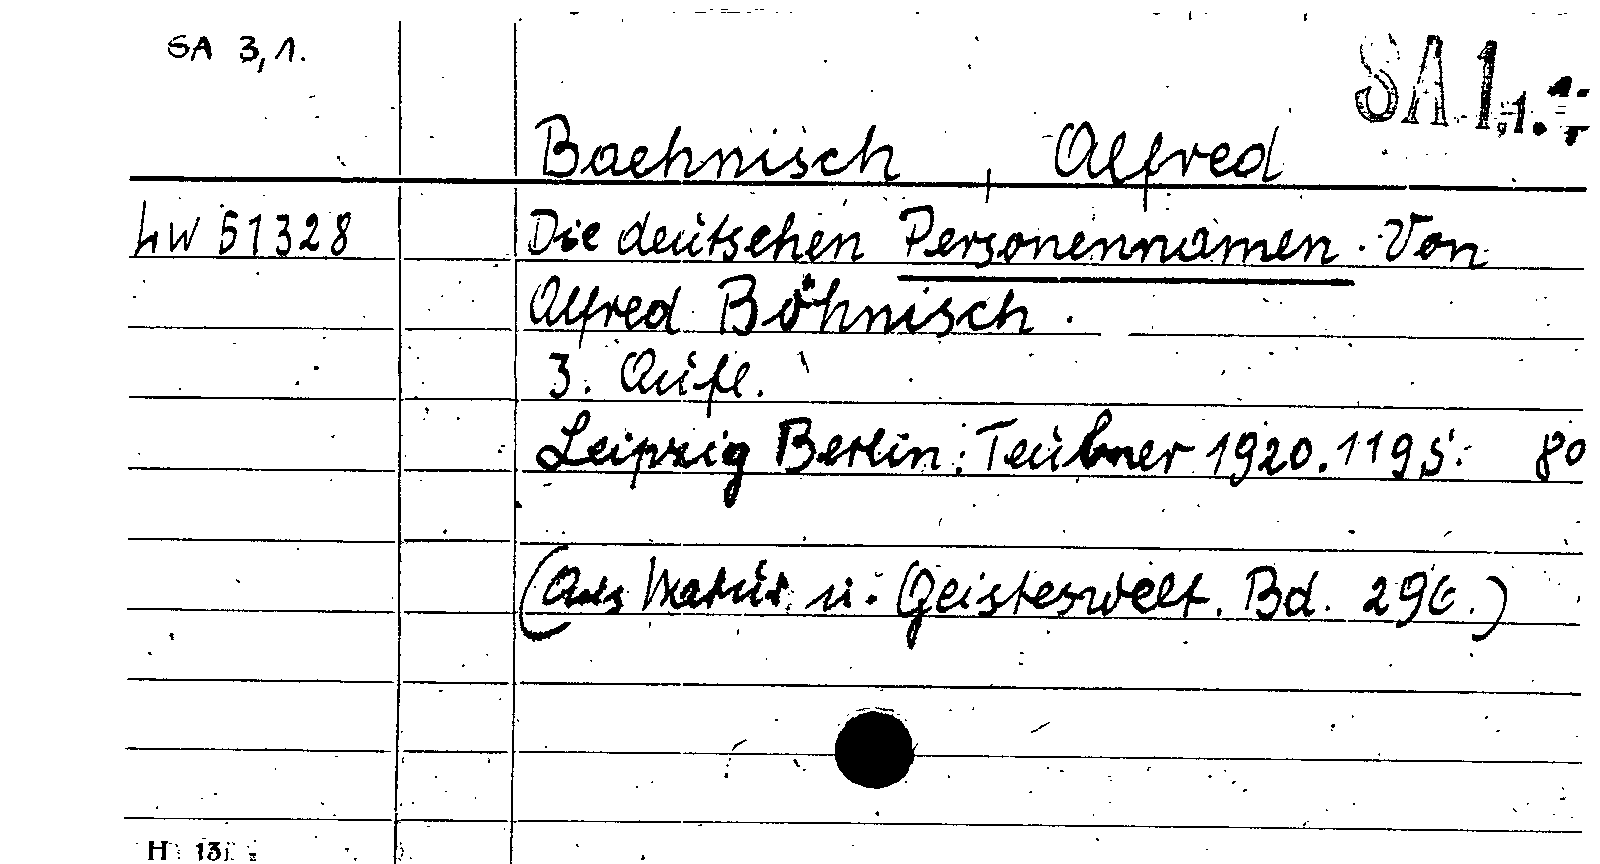 SA 3,1.
SA 1,1.
Baehnisch, Alfred
LW 51328
Die deutschen Personennamen. Von
Alfred Böhnisch.
3. Aufl.
Leipzig Berlin: Teubner 1920. 119 S. 8o
(Aus Natur u. Geisteswelt. Bd. 296.)
H 13